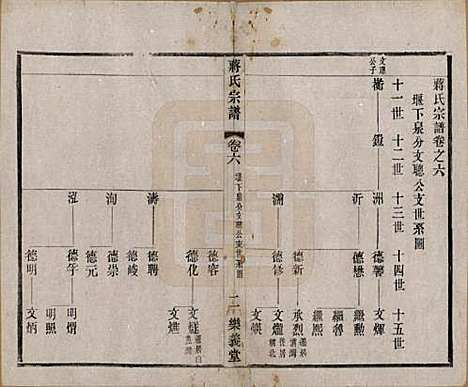 蔣氏宗譜卷之六
堰下泉分文聰公支世系圖
十一世
十二世
十三世
十四世
十五世
文聰公子
衡
鐙
洲
德馨
文煇
沂
德懋
繼勳
繼蓉
繼熙
瀾
德新
承烈
德修
文煐
德容
德化
文燧
蔣氏宗譜
卷六
堰下泉分文聰公支世系圖
二
樂義堂
濤
德聘
德崚
洵
德崇
德元
泓
德午
明熠
明照
德明
文炳